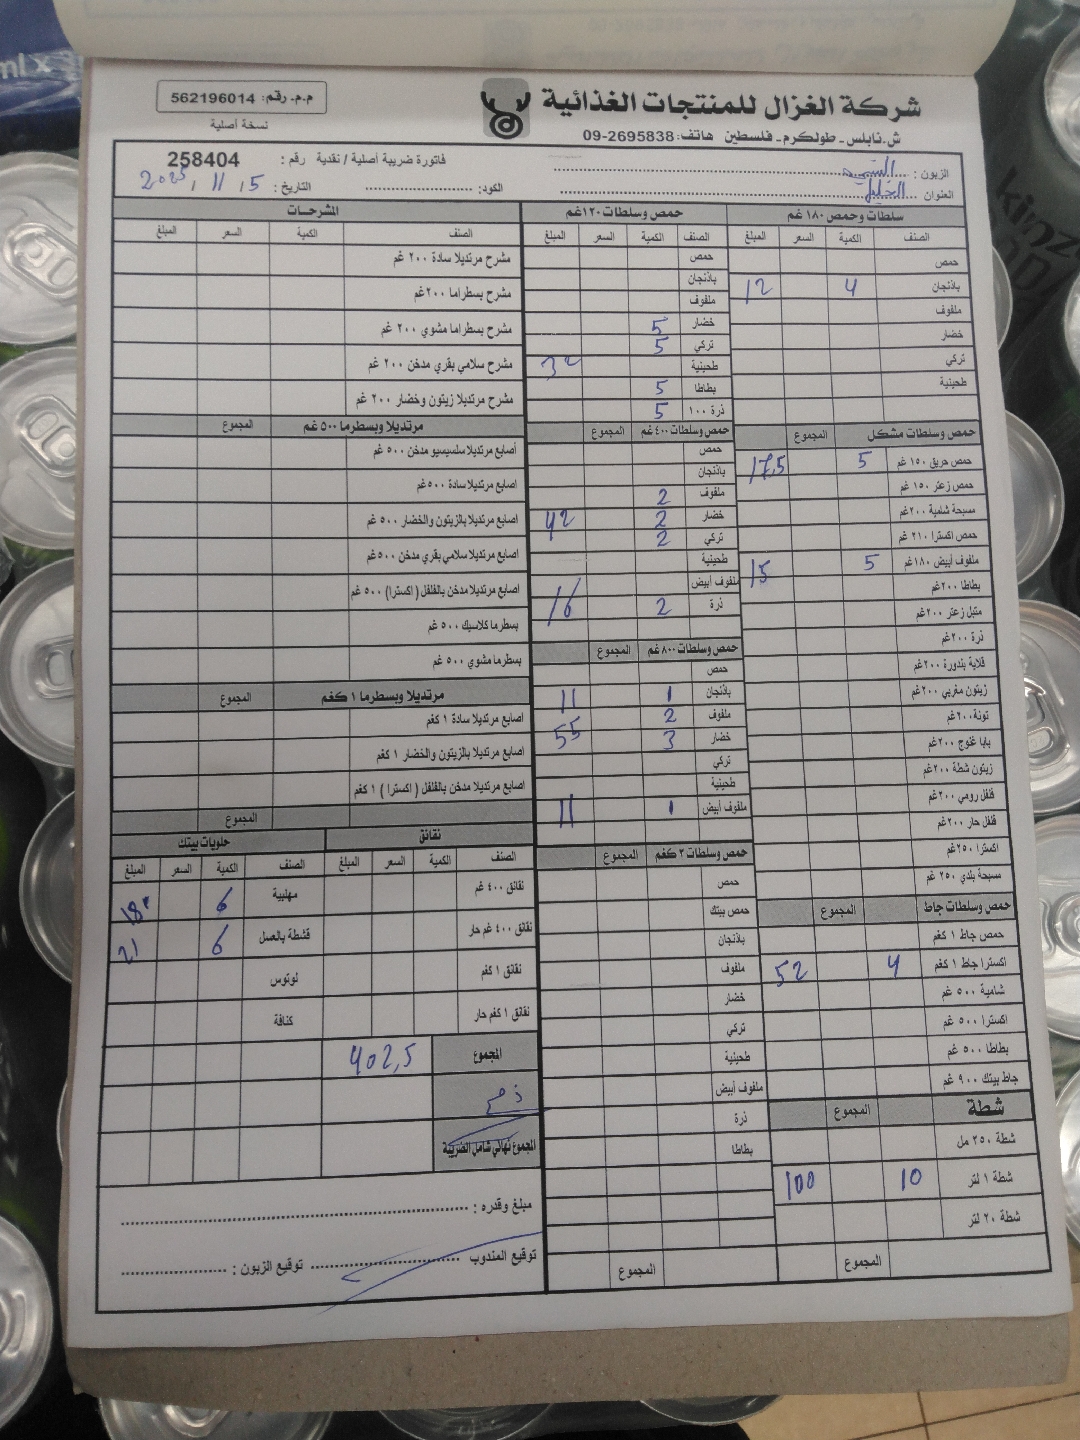 شركة الغزال للمنتجات الغذائية
ش.نابلس - طولكرم - فلسطين هاتف: 09-2695838
م.م. رقم: 562196014
نسخة أصلية
فاتورة ضريبة أصلية / نقدية رقم: 258404
الزبون:
العنوان الخليل
الكود:
التاريخ: 5 / 11 / 2025
سلطات وحمص ١٨٠ غم
الصنف الكمية السعر المبلغ
حمص
باذنجان 4 12
ملفوف
خضار
تركي
طحينية
حمص وسلطات مشكل المجموع
حمص حريق ١٥٠ غم 5 17,5
حمص زعتر ١٥٠ غم
مسبحة شامية ٢٠٠ غم
حمص اكسترا ٢١٠ غم
ملفوف أبيض ١٨٠ غم 5 15
بطاطا ٢٠٠ غم
متبل زعتر ٢٠٠ غم
ذرة ٢٠٠ غم
قلاية بندورة ٢٠٠ غم
زيتون مغربي ٢٠٠ غم
تونة ٢٠٠ غم
بابا غنوج ٢٠٠ غم
زيتون شطة ٢٠٠ غم
فلفل رومي ٢٠٠ غم
فلفل حار ٢٠٠ غم
اكسترا ٢٥٠ غم
مسبحة بلدي ٢٥٠ غم
حمص وسلطات جاط المجموع
حمص جاط ١ كغم
اكسترا جاط ١ كغم 4 52
شامية ٥٠٠ غم
اكسترا ٥٠٠ غم
بطاطا ٥٠٠ غم
جاط بيتك ٩٠٠ غم
شطة المجموع
شطة ٢٥٠ مل
شطة ١ لتر 10 100
شطة ٢٠ لتر
المجموع
حمص وسلطات ١٢٠ غم
الصنف الكمية السعر المبلغ
حمص
باذنجان
ملفوف
خضار 5
تركي 5
طحينية 32
بطاطا 5
ذرة ١٠٠ 5
حمص وسلطات ٤٠٠ غم المجموع
حمص
باذنجان
ملفوف 2
خضار 2 42
تركي 2
طحينية
ملفوف أبيض
ذرة 2 16
حمص وسلطات ٨٠٠ غم المجموع
حمص
باذنجان 1 11
ملفوف 2
خضار 3 55
تركي
طحينية
ملفوف أبيض 1 11
حمص وسلطات ٣ كغم المجموع
حمص
حمص بيتك
باذنجان
ملفوف
خضار
تركي
طحينية
ملفوف أبيض
ذرة
بطاطا
المجموع
المشرحات
الصنف الكمية السعر المبلغ
مشرح مرتديلا سادة ٢٠٠ غم
مشرح بسطراما ٢٠٠ غم
مشرح بسطراما مشوي ٢٠٠ غم
مشرح سلامي بقري مدخن ٢٠٠ غم
مشرح مرتديلا زيتون وخضار ٢٠٠ غم
مرتديلا وبسطرما ٥٠٠ غم المجموع
أصابع مرتديلا سلسيسيو مدخن ٥٠٠ غم
اصابع مرتديلا سادة ٥٠٠ غم
اصابع مرتديلا بالزيتون والخضار ٥٠٠ غم
اصابع مرتديلا سلامي بقري مدخن ٥٠٠ غم
اصابع مرتديلا مدخن بالفلفل ( اكسترا ) ٥٠٠ غم
بسطرما كلاسيك ٥٠٠ غم
بسطرما مشوي ٥٠٠ غم
مرتديلا وبسطرما ١ كغم المجموع
اصابع مرتديلا سادة ١ كغم
اصابع مرتديلا بالزيتون والخضار ١ كغم
اصابع مرتديلا مدخن بالفلفل ( اكسترا ) ١ كغم
المجموع
نقانق
الصنف الكمية السعر المبلغ
نقانق ٤٠٠ غم
نقانق ٤٠٠ غم حار
نقانق ١ كغم
نقانق ١ كغم حار
حلويات بيتك
الصنف الكمية السعر المبلغ
مهلبية 6 18
قشطة بالعسل 6 21
لوتوس
كنافة
المجموع 402,5
المجموع نهائي شامل الضريبة
مبلغ وقدره:
توقيع المندوب
توقيع الزبون: